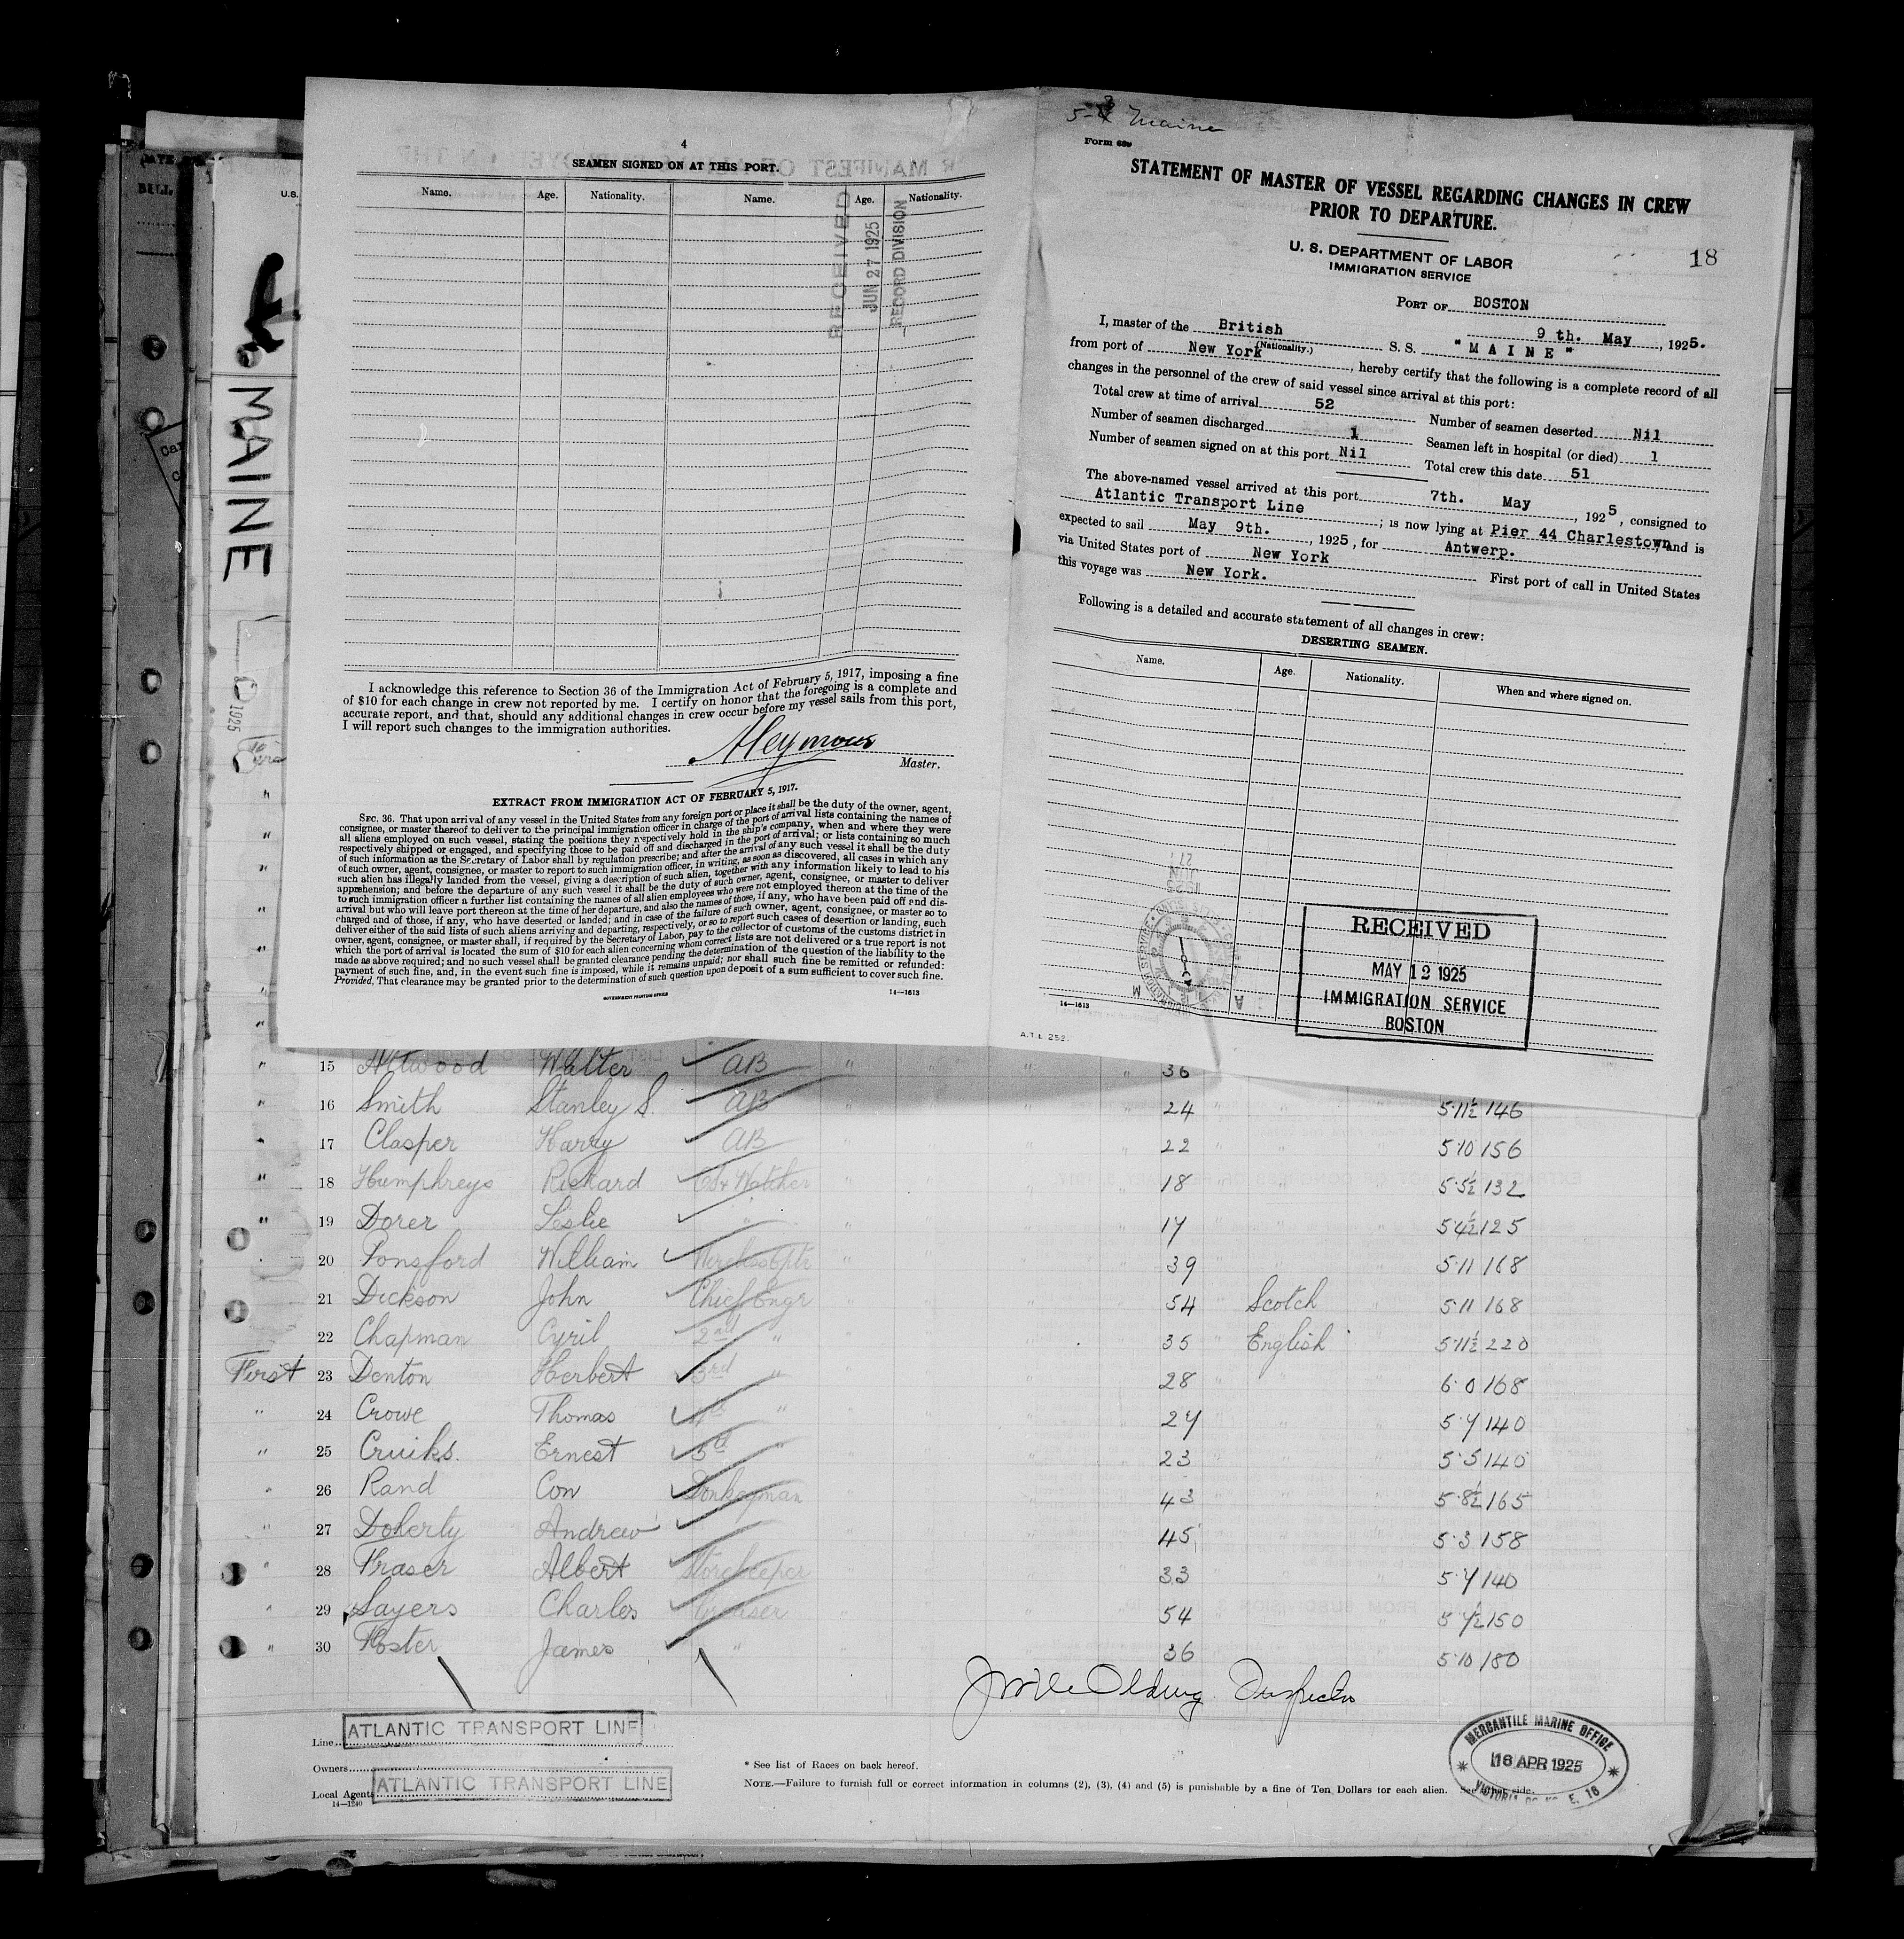 4
SEAMEN SIGNED ON AT THIS PORT.
Name. Age. Nationality. Name. Age. Nationality.
RECEIVED
JUN 27 1925
RECORD DIVISION
I acknowledge this reference to Section 36 of the Immigration Act of February 5, 1917, imposing a fine
of $10 for each change in crew not reported by me. I certify on honor that the foregoing is a complete and
accurate report, and that, should any additional changes in crew occur before my vessel sails from this port,
I will report such changes to the immigration authorities.
Master.
EXTRACT FROM IMMIGRATION ACT OF FEBRUARY 5, 1917.
SEC. 36. That upon arrival of any vessel in the United States from any foreign port or place it shall be the duty of the owner, agent,
consignee, or master thereof to deliver to the principal immigration officer in charge of the port of arrival lists containing the names of
all aliens employed on such vessel, stating the positions they respectively hold in the ship's company, when and where they were
respectively shipped or engaged, and specifying those to be paid off and discharged in the port of arrival; or lists containing so much
of such information as the Secretary of Labor shall by regulation prescribe; and after the arrival of any such vessel it shall be the duty
of such owner, agent, consignee, or master to report to such immigration officer, in writing, as soon as discovered, all cases in which any
such alien has illegally landed from the vessel, giving a description of such alien, together with any information likely to lead to his
apprehension; and before the departure of any such vessel it shall be the duty of such owner, agent, consignee, or master to deliver
to such immigration officer a further list containing the names of all alien employees who were not employed thereon at the time of the
arrival but who will leave port thereon at the time of her departure, and also the names of those, if any, who have been paid off and dis-
charged and of those, if any, who have deserted or landed; and in case of the failure of such owner, agent, consignee, or master so to
deliver either of the said lists of such aliens arriving and departing, respectively, or so to report such cases of desertion or landing, such
owner, agent, consignee, or master shall, if required by the Secretary of Labor, pay to the collector of customs of the customs district in
which the port of arrival is located the sum of $10 for each alien concerning whom correct lists are not delivered or a true report is not
made as above required; and no such vessel shall be granted clearance pending the determination of the question of the liability to the
payment of such fine, and, in the event such fine is imposed, while it remains unpaid; nor shall such fine be remitted or refunded:
Provided, That clearance may be granted prior to the determination of such question upon deposit of a sum sufficient to cover such fine.
GOVERNMENT PRINTING OFFICE 14—1613
Maine
Form 689
STATEMENT OF MASTER OF VESSEL REGARDING CHANGES IN CREW
PRIOR TO DEPARTURE.
U. S. DEPARTMENT OF LABOR
IMMIGRATION SERVICE
18
PORT OF BOSTON
9 th. May, 1925.
I, master of the British S. S. "MAINE"
(Nationality.)
from port of New York, hereby certify that the following is a complete record of all
changes in the personnel of the crew of said vessel since arrival at this port:
Total crew at time of arrival 52 Number of seamen deserted Nil
Number of seamen discharged 1 Seamen left in hospital (or died) 1
Number of seamen signed on at this port Nil Total crew this date 51
The above-named vessel arrived at this port 7th. May, 1925, consigned to
Atlantic Transport Line; is now lying at Pier 44 Charlestown and is
expected to sail May 9th., 1925, for Antwerp.
via United States port of New York First port of call in United States
this voyage was New York.
Following is a detailed and accurate statement of all changes in crew:
DESERTING SEAMEN.
Name. Age. Nationality. When and where signed on.
RECEIVED
MAY 12 1925
IMMIGRATION SERVICE
BOSTON
14—1613
A.T.L. 252.
U.S.
MAINE
1925
" 15 Attwood Walter AB " 36
" 16 Smith Stanley S. AB 24 5·11½ 146
" 17 Clasper Harry AB 22 5·10 156
" 18 Humphreys Richard 18 5·5½ 132
" 19 Dorer Leslie " 17 5·4½ 125
" 20 Ponsford William Wireless Optr 39 5·11 168
21 Dickson John Chief Engr 54 Scotch 5·11 168
22 Chapman Cyril 2nd " 35 English 5·11½ 220
First 23 Denton Herbert 3rd " 28 6·0 168
" 24 Crowe Thomas 4th " 27 5·7 140
" 25 Cruiks. Ernest 5th " 23 5·5 140
" 26 Rand Con Donkeyman 43 5·8½ 165
" 27 Doherty Andrew 45 5·3 158
" 28 Fraser Albert Storekeeper 33 5·7 140
" 29 Sayers Charles Greaser 54 5·7½ 150
" 30 Foster James " 36 5·10 180
Inspector
Line ATLANTIC TRANSPORT LINE
Owners
Local Agents ATLANTIC TRANSPORT LINE
14—1240
* See list of Races on back hereof.
NOTE.—Failure to furnish full or correct information in columns (2), (3), (4) and (5) is punishable by a fine of Ten Dollars for each alien.
MERCANTILE MARINE OFFICE
16 APR 1925
E. 16